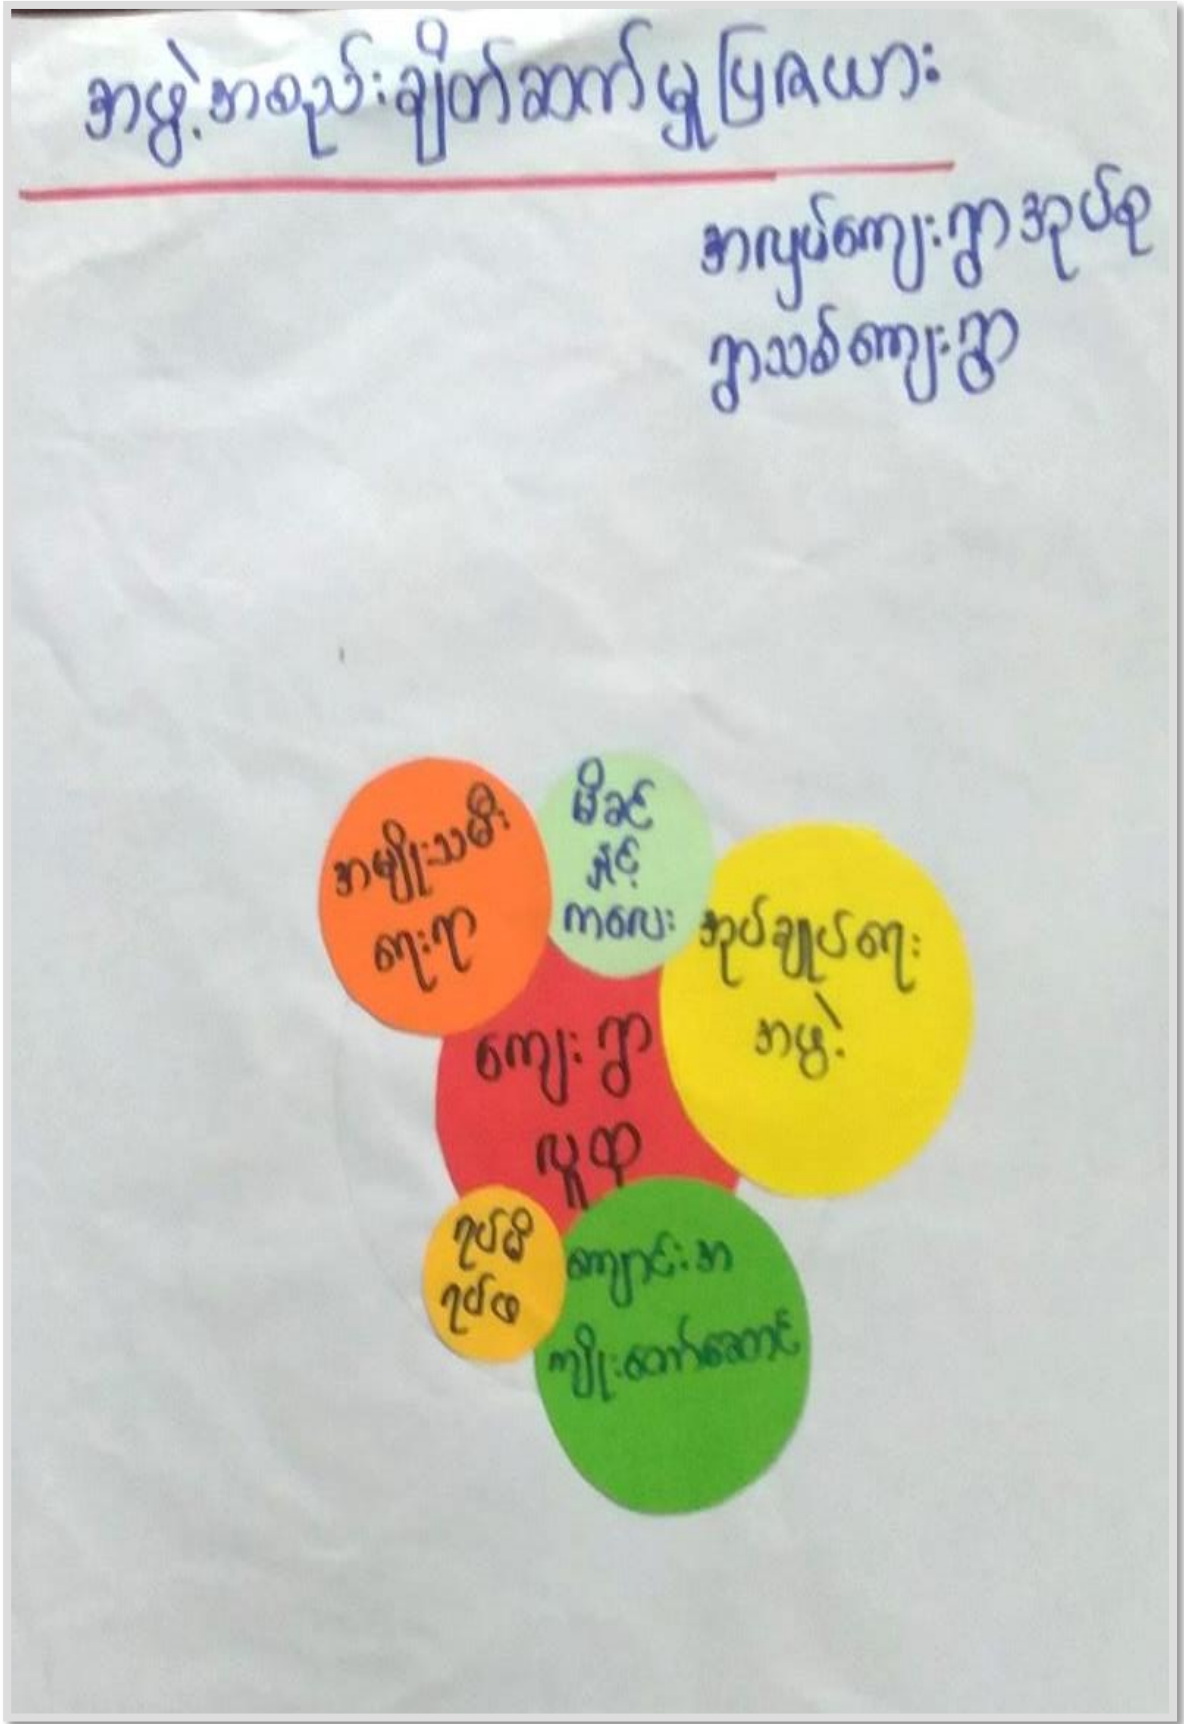 အဖွဲ့အစည်းချိတ်ဆက်မှုပြဇယား
အလျပ်ကျေးရွာအုပ်စု
ရွာသစ်ကျေးရွာ
အမျိုးသမီး
ရေးရာ
မိခင်
နှင့်
ကလေး
အုပ်ချုပ်ရေး
အဖွဲ့
ကျေးရွာ
လူထု
ရပ်မိ
ရပ်ဖ
ကျောင်းအ
ကျိုးတော်ဆောင်